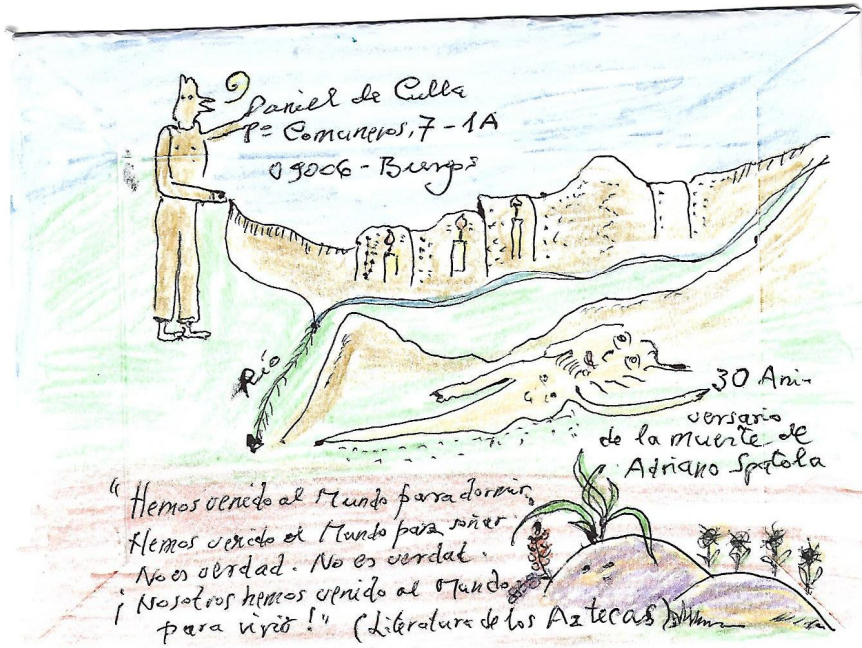 Daniel de Culla
Pº Comuneros, 7-1A
09006-Burgos
Río
30 Ani-
versario
de la muerte de
Adriano Spatola
"Hemos venido al Mundo para dormir,
Hemos venido al Mundo para soñar.
No es verdad. No es verdad.
¡Nosotros hemos venido al Mundo
para vivir!" (Literatura de los Aztecas)